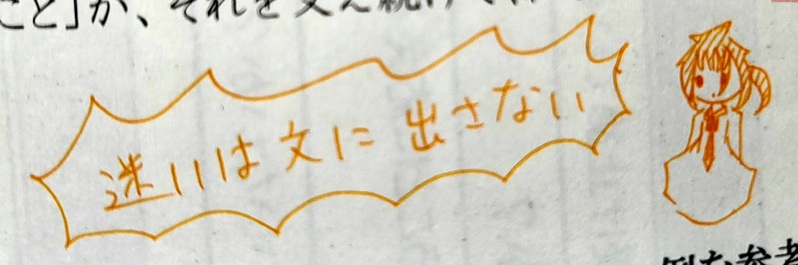 こと」が、それを支え続け
迷いは文に出さない